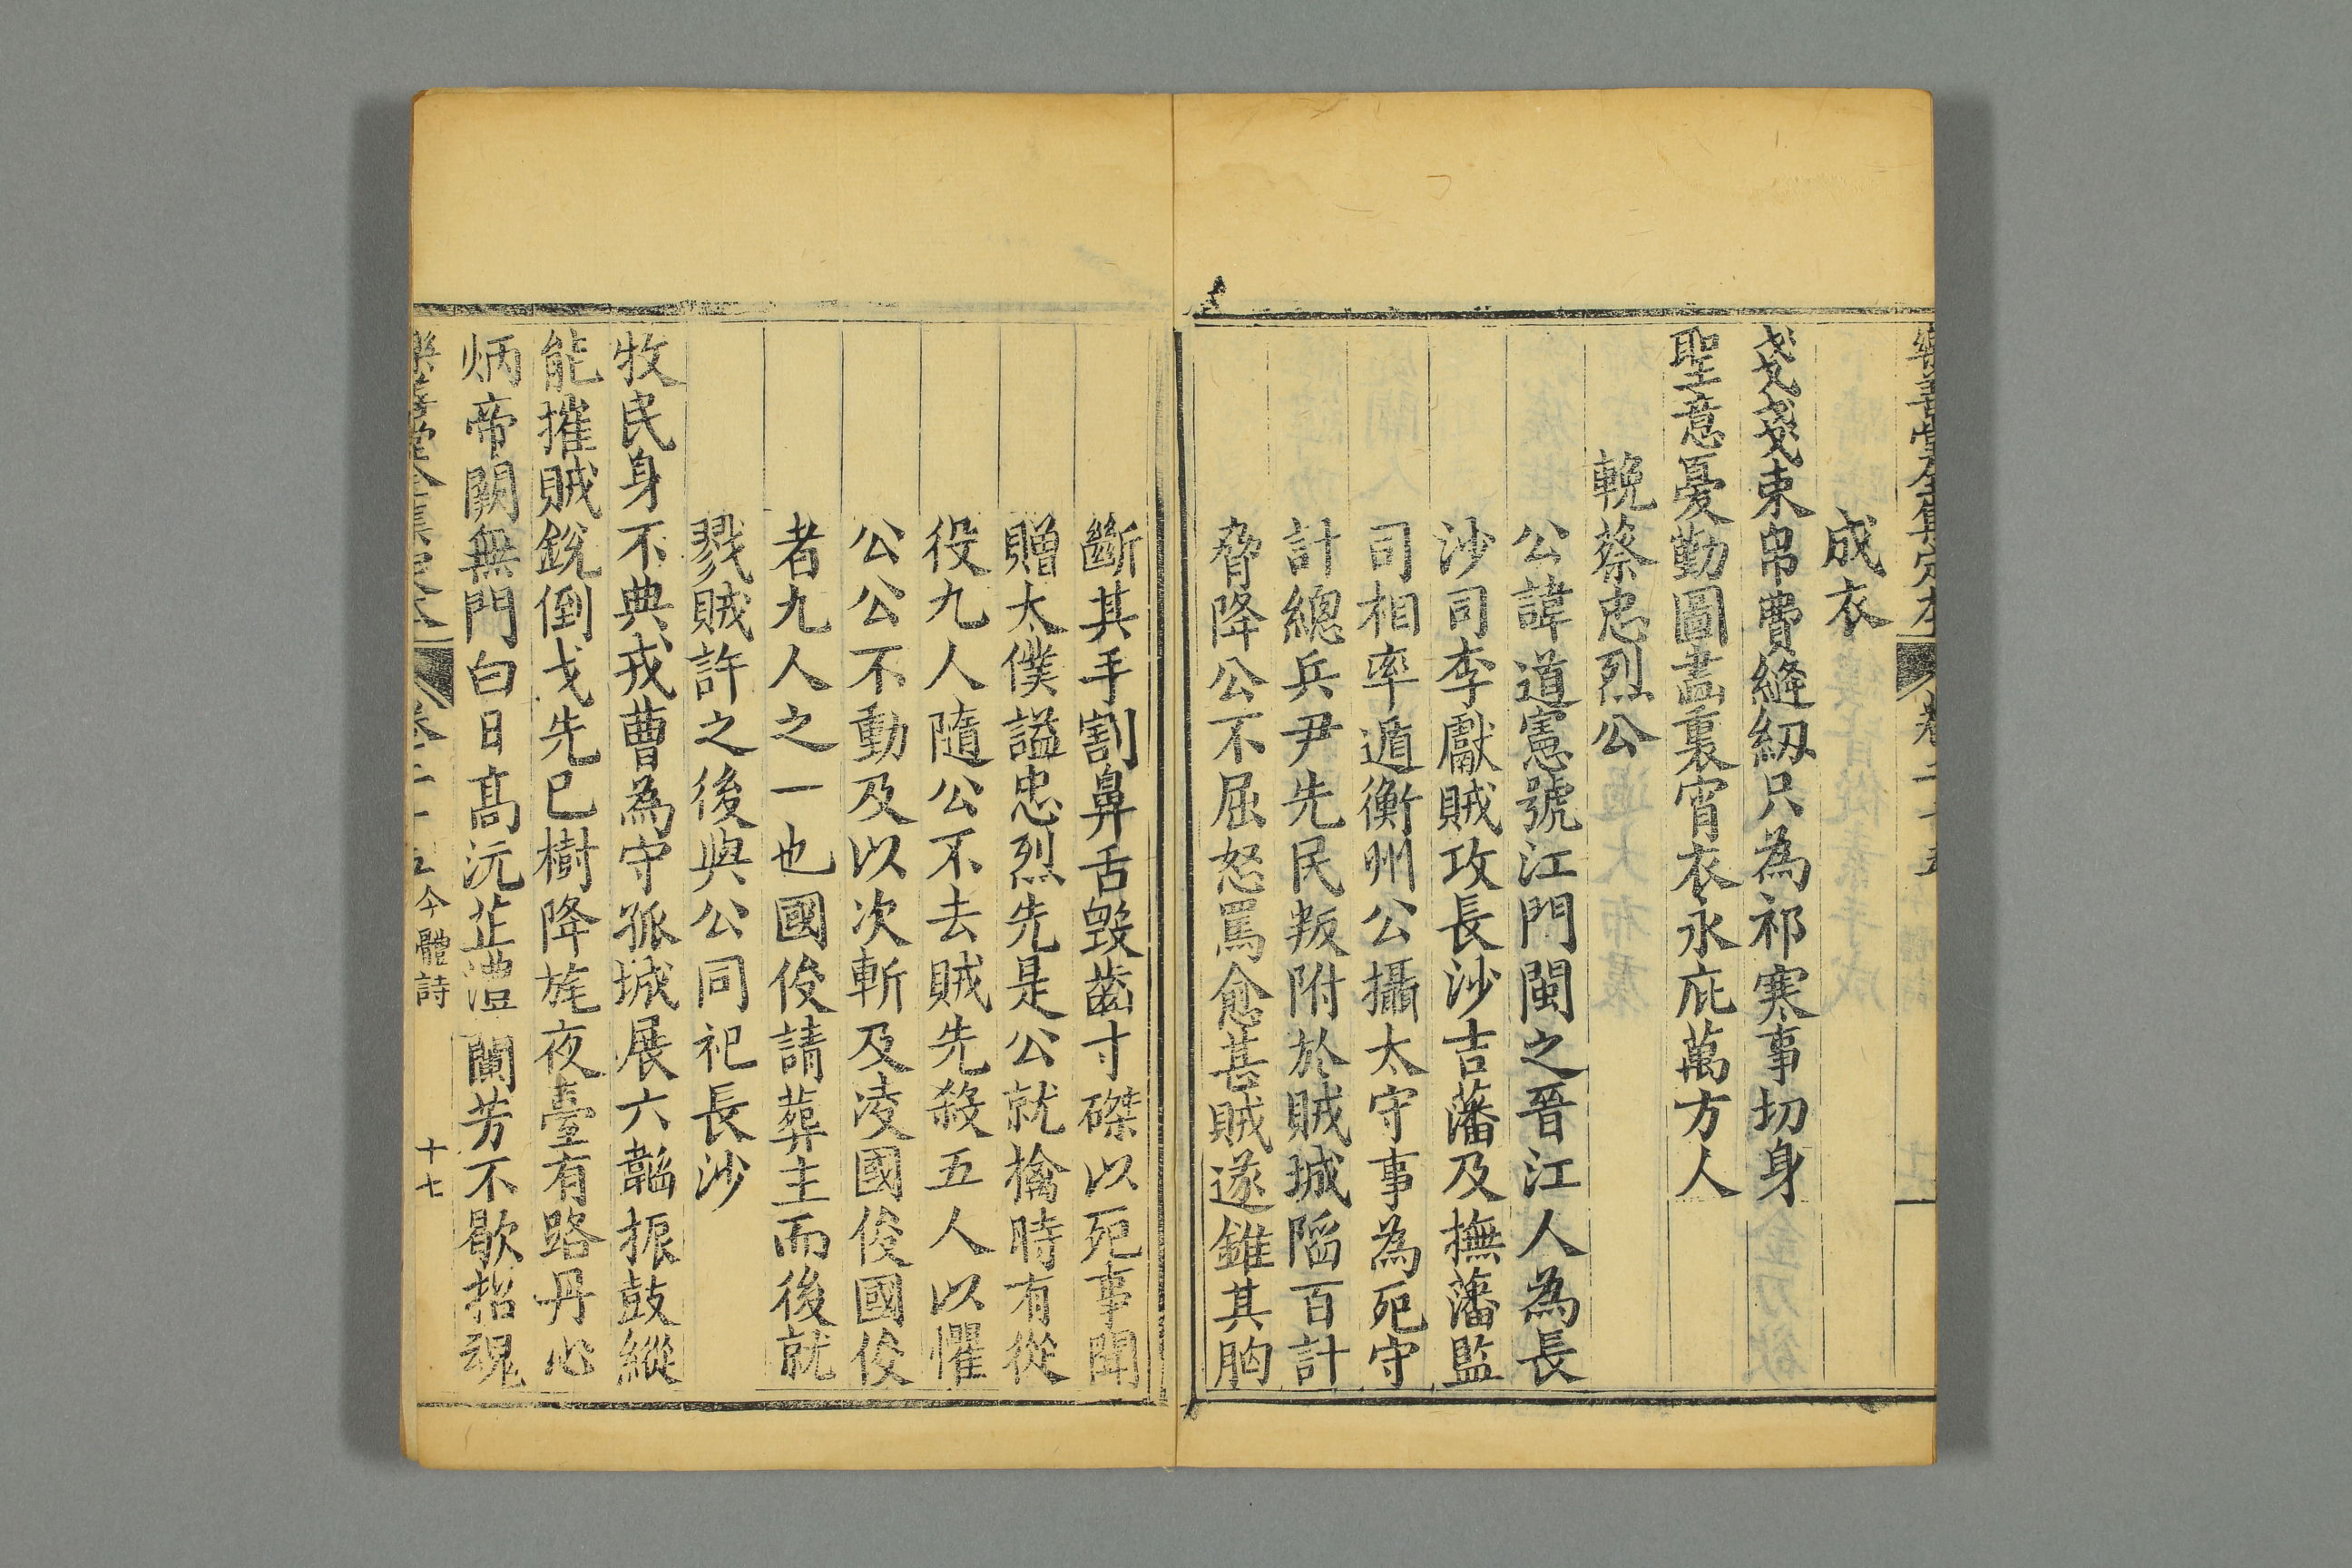 樂善堂全集定本 卷二十五
成衣
戔戔束帛費縫紉只為祁寒事切身
聖意憂勤圖畫裏宵衣永庇萬方人
輓蔡忠烈公
公諱道憲號江門閩之晉江人為長
沙司李獻賊攻長沙吉藩及撫藩監
司相率遁衡州公攝太守事為死守
計總兵尹先民叛附於賊城陷百計
脅降公不屈怒罵愈甚賊遂錐其胸
斷其手割鼻舌毀齒寸磔以死事聞
贈太僕謚忠烈先是公就擒時有從
役九人隨公不去賊先殺五人以懼
公公不動及以次斬及凌國俊國俊
者九人之一也國俊請葬主而後就
戮賊許之後與公同祀長沙
牧民身不典戎曹為守孤城展六韜振鼓縱
能摧賊銳倒戈先已樹降旄夜臺有路丹心
炳帝闕無門白日高沅芷澧蘭芳不歇招魂
樂善堂全集定本 卷二十五今體詩 十七